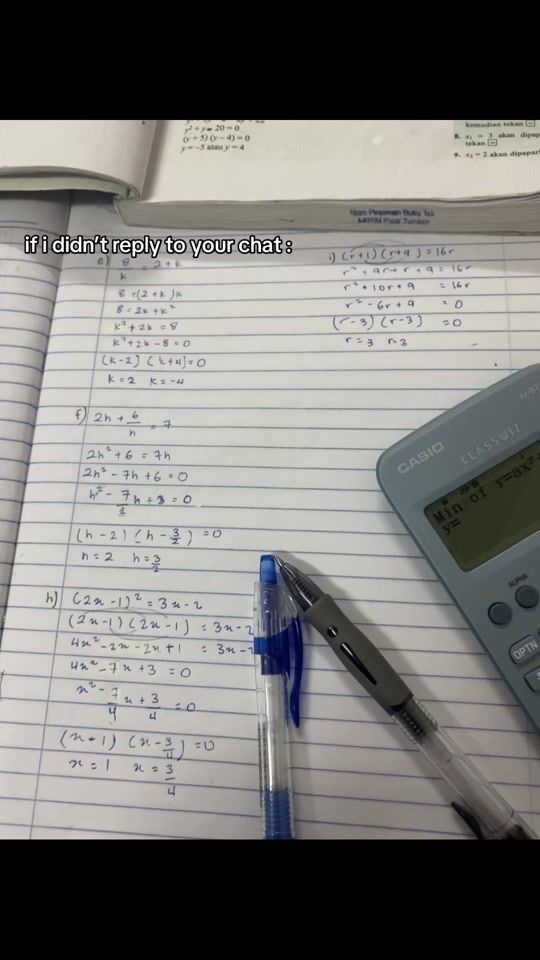 y² + y - 20 = 0
(y + 5) (y - 4) = 0
y = -5 atau y = 4
kemudian tekan
8. x₁ = 3 akan dipapar
tekan
9. x₂ = 2 akan dipapar
Skim Pinjaman Buku Teks
MRSM Pasir Tumboh
if i didn't reply to your chat :
e) 8/k = 2+k
8 = (2+k)k
8 = 2k + k²
k² + 2k = 8
k² + 2k - 8 = 0
(k-2) (k+4) = 0
k = 2 k = -4
i) (r+1)(r+9) = 16r
r² + 9r + r + 9 = 16r
r² + 10r + 9 = 16r
r² - 6r + 9 = 0
(r-3) (r-3) = 0
r = 3 r = 3
f) 2h + 6/h = 7
2h² + 6 = 7h
2h² - 7h + 6 = 0
h² - 7/2 h + 3 = 0
(h-2) (h - 3/2) = 0
h = 2 h = 3/2
h) (2x-1)² = 3x-2
(2x-1) (2x-1) = 3x-2
4x² - 2x - 2x + 1 = 3x-2
4x² - 7x + 3 = 0
x² - 7/4 x + 3/4 = 0
(x-1) (x - 3/4) = 0
x = 1 x = 3/4
CASIO
CLASSWIZ
Min of y=ax²
y=
ALPHA
OPTN